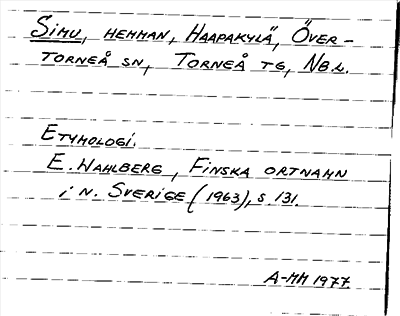 Simu, hemman, Haapakylä, Över-
torneå sn, Torneå tg, Nb l.
Etymologi.
E. Wahlberg, Finska ortnamn
i N. Sverige (1963), s. 131.
A-MM 1977